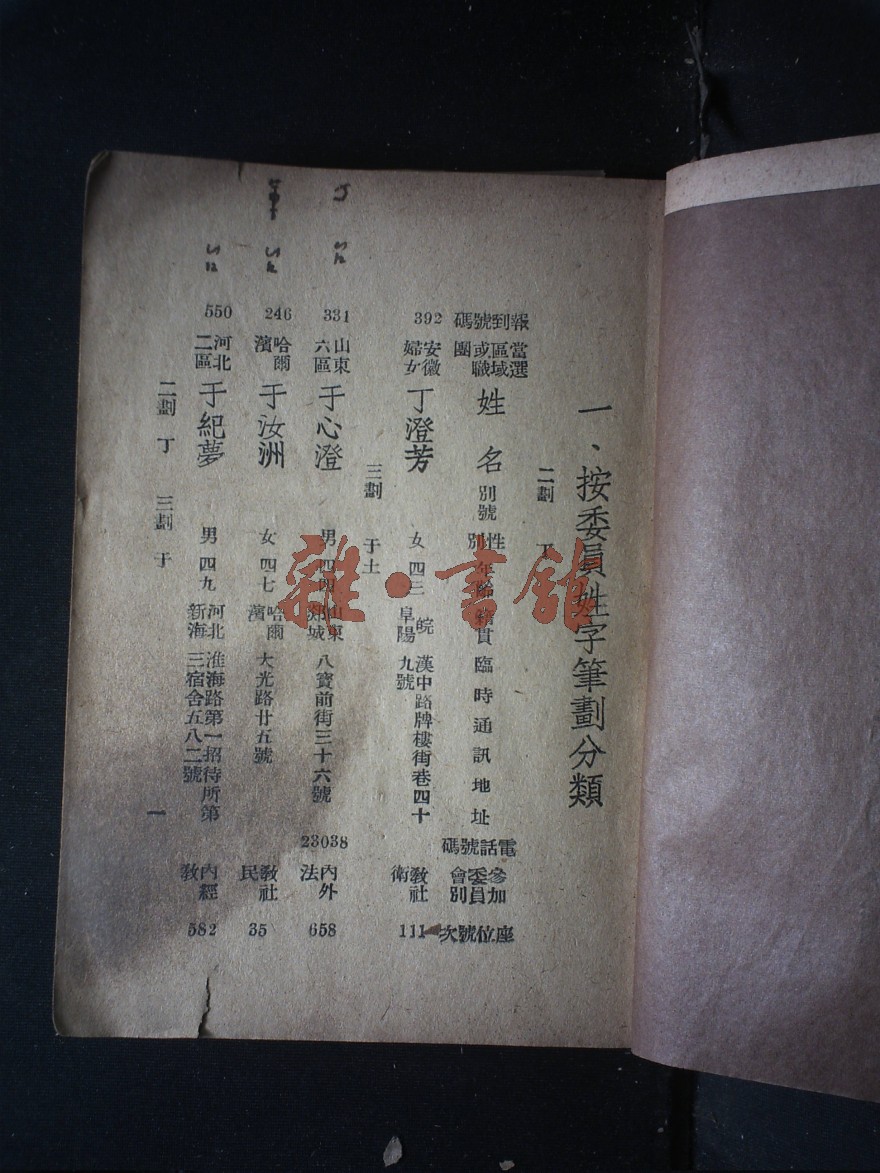 一、按委員姓字筆劃分類
二劃 丁
報到號碼 當選區域或職團 姓名 別號 性別 年齡 籍貫 臨時通訊地址 電話號碼 參加委員會別 座位號次
392 安徽婦女 丁澄芳 女 四三 皖阜陽 漢中路牌樓街巷四十九號 教社衛 111
三劃 于土
331 山東六區 于心澄 男 四四 山東郯城 八寶前街三十六號 23038 內外法 658
246 哈爾濱 于汝洲 女 四七 哈爾濱 大光路廿五號 教社民 35
550 河北二區 于紀夢 男 四九 河北新海 淮海路第一招待所第三宿舍五八二號 內經教 582
二劃 丁 三劃 于
一
雜·書館